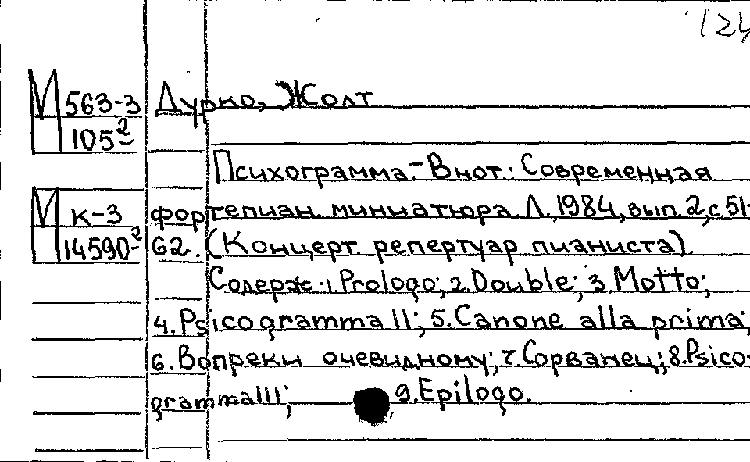 124
М 563-3 Дурко, Жолт
105²
Психограмма.- В нот.: Современная
М к-3 фортепиан. миниатюра Л., 1984, вып. 2, с. 51-
14590² 62. (Концерт. репертуар пианиста)
Содерж.: 1. Prologo; 2. Double; 3. Motto;
4. Psicogramma II; 5. Canone alla prima;
6. Вопреки очевидному; 7. Сорванец; 8. Psico-
gramma III; 9. Epilogo.